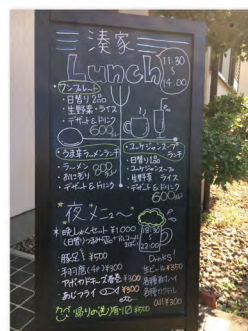 湊家
Lunch
11:30
~
14:00
・ワンプレート
・日替り2品
・生野菜・ライス
・デザート&ドリンク
600
・うま辛ラーメンランチ
・ラーメン
・おにぎり
・デザート&ドリンク
800
・ユッケジャンスープランチ
・日替り1品
・ユッケジャンスープ
・生野菜 ライス
・デザート&ドリンク
600
夜メニュ〜
晩しゃくセット ¥1000
(日替りつまみ
18:30
~
22:00
豚足 ¥500
手羽唐(4コ)¥300
アボカドチーズ春巻 ¥300
あじフライ ¥300
etc
Drinks
生ビール¥350
各種カクテル
all ¥300
帰りの送り有り ¥500